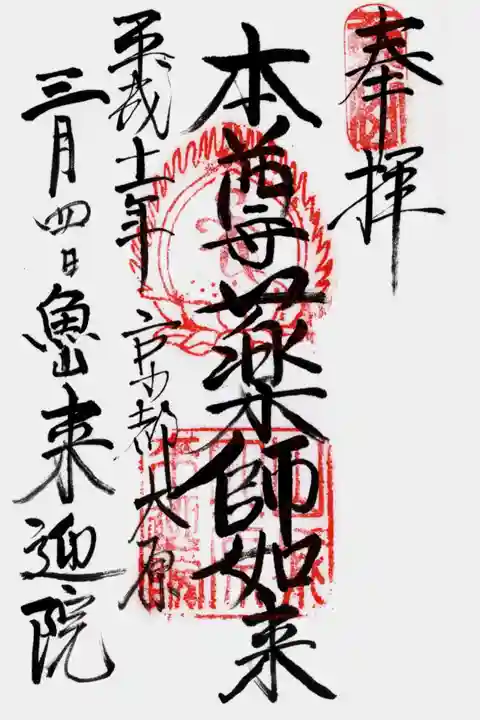 奉拝
本尊薬師如来
平成十一年 京都大原
三月四日 魚山来迎院